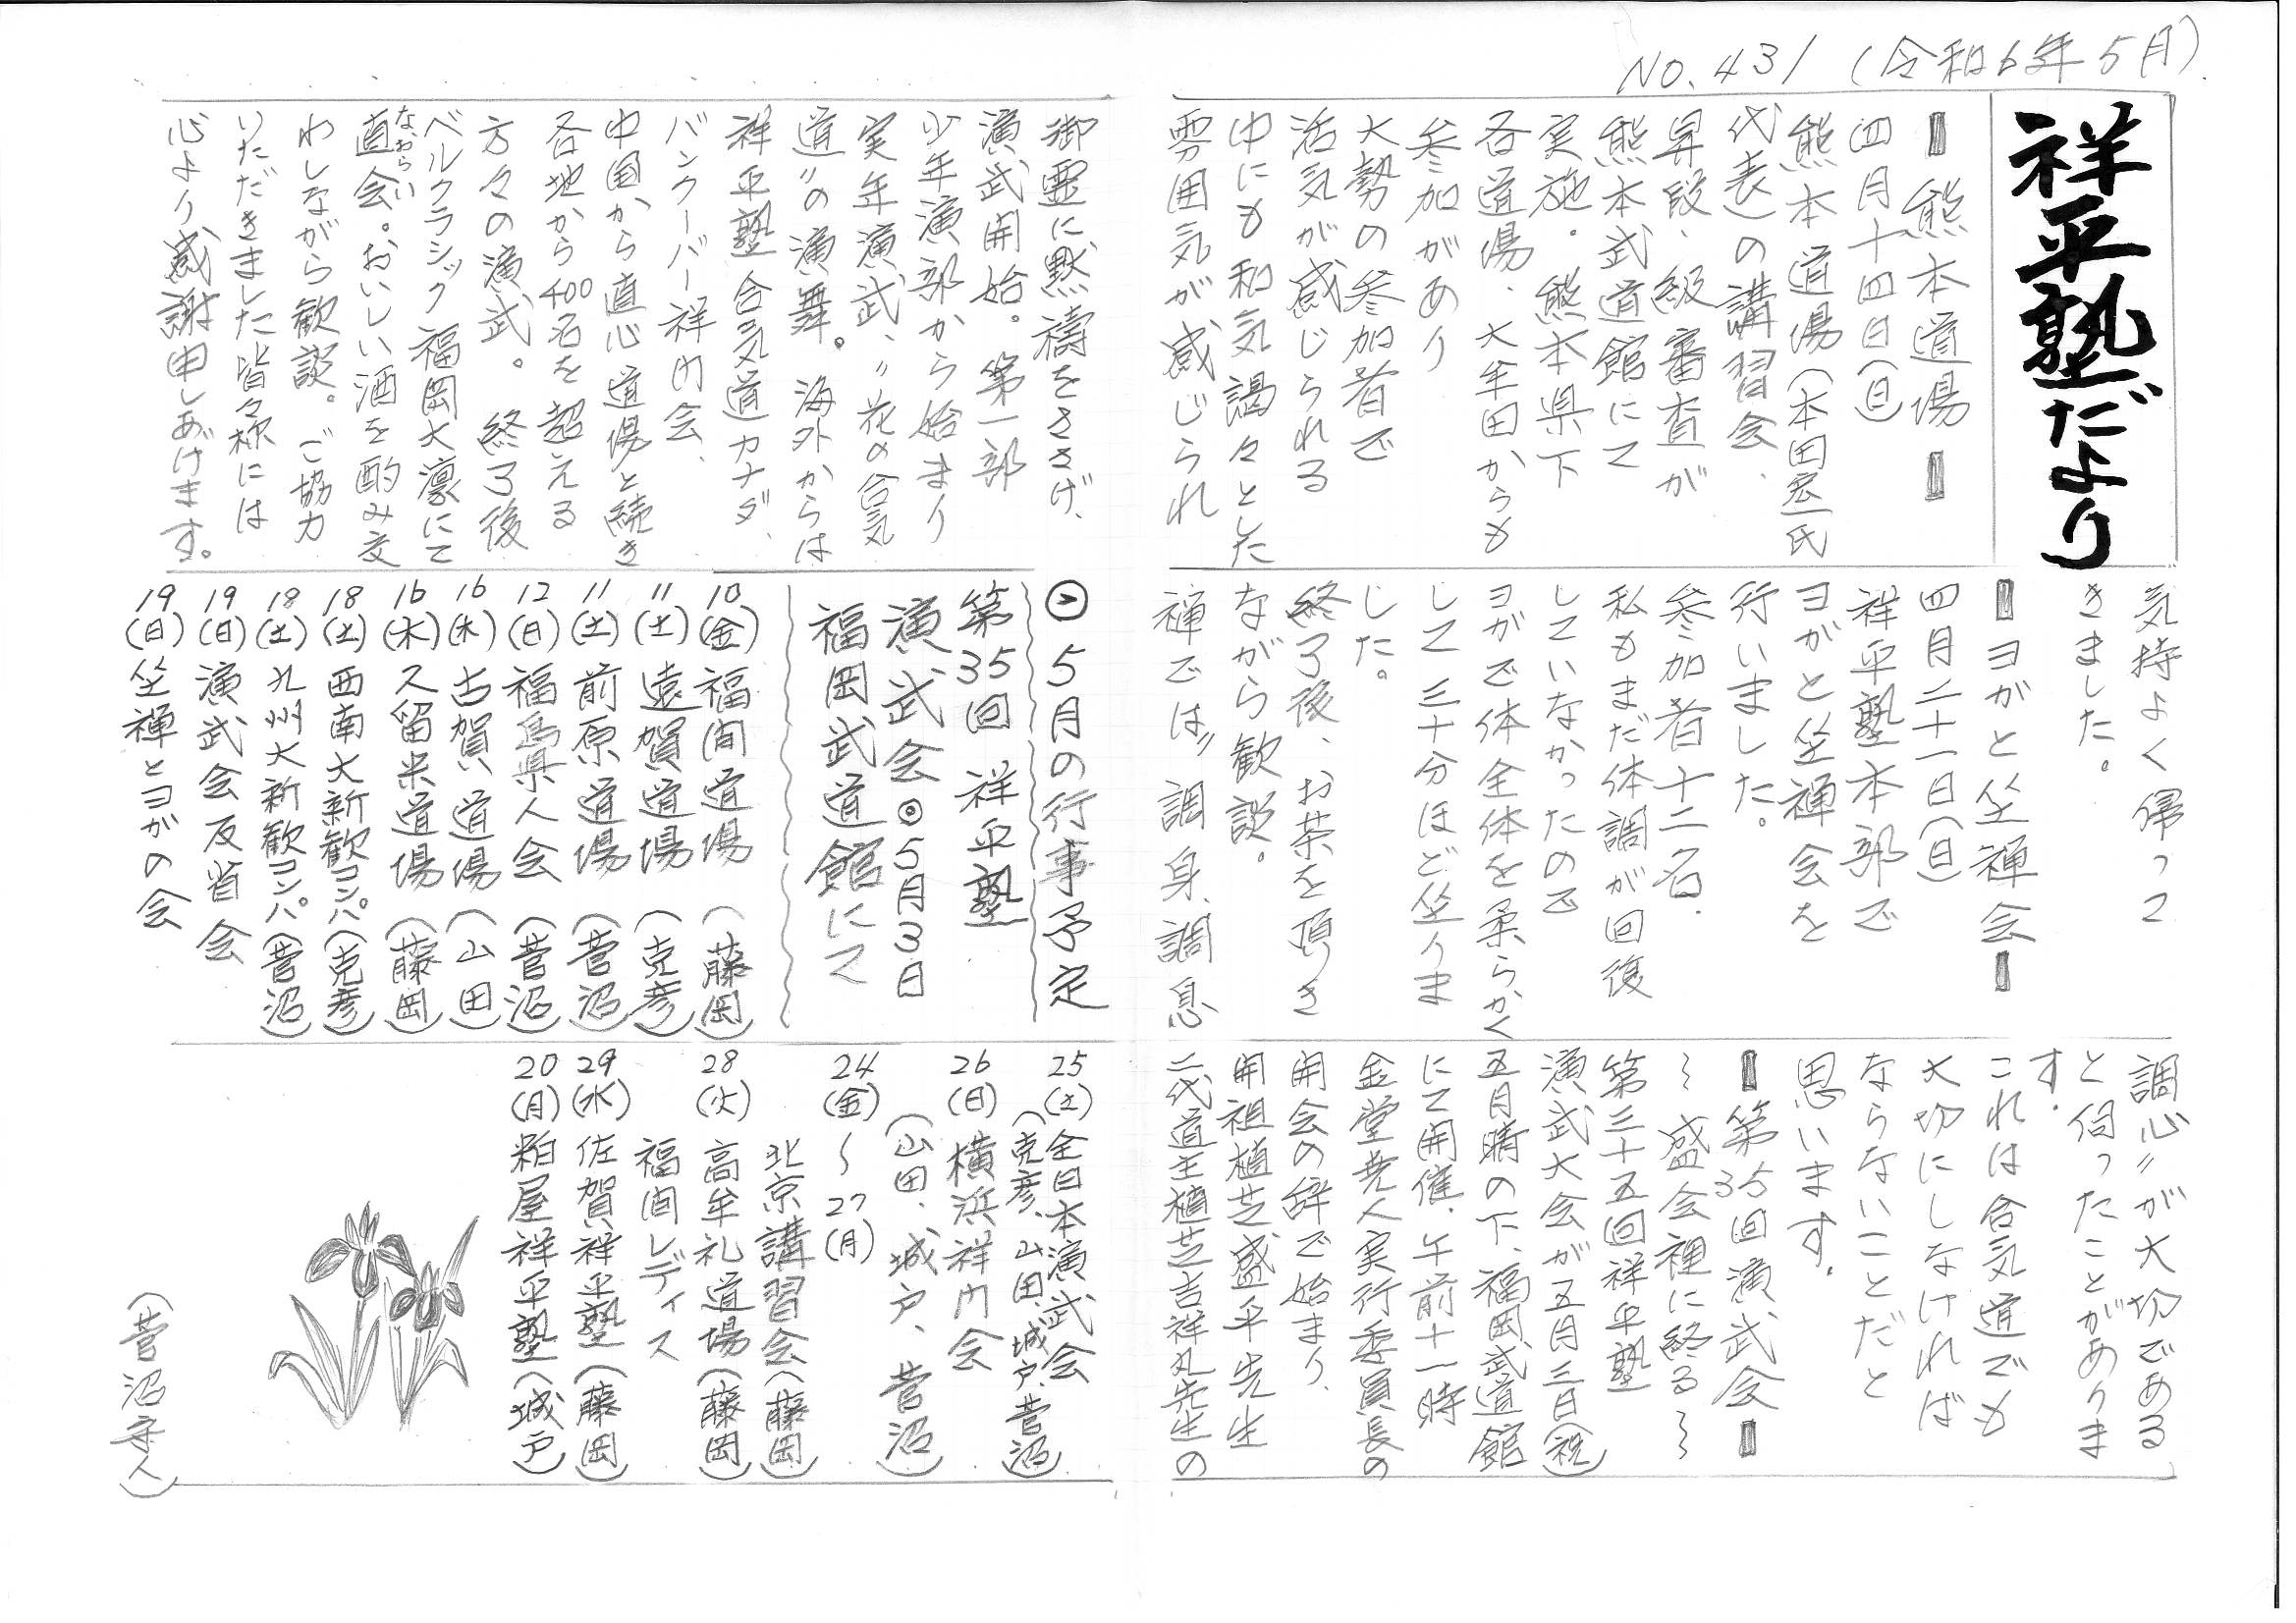 NO.431 (令和6年5月)
祥平塾だより
熊本道場
四月十四日(日)
熊本道場(本田宏氏
代表)の講習会、
昇段、級審査が
熊本武道館にて
実施。熊本県下
各道場、大牟田からも
参加があり
大勢の参加者で
活気が感じられる
中にも和気譪々とした
雰囲気が感じられ
気持よく帰って
きました。
ヨガと坐禅会
四月二十一日(日)
祥平塾本部で
ヨガと坐禅会を
行いました。
参加者十二名。
私もまだ体調が回復
していなかったので
ヨガで体全体を柔らかく
して三十分ほど坐りま
した。
終了後、お茶を頂き
ながら歓談。
禅では〝調身、調息
調心〟が大切である
と伺ったことがありま
す。
これは合気道でも
大切にしなければ
ならないことだと
思います。
第35回演武会
〜盛会裡に終る〜
第三十五回祥平塾
演武大会が五月三日(祝)
五月晴の下、福岡武道館
にて開催、午前十一時
金堂尭人実行委員長の
開会の辞で始まり、
開祖植芝盛平先生
二代道主植芝吉祥丸先生の
御霊に黙禱をささげ、
演武開始。第一部
少年演部から始まり
実年演武、〝花の合気
道〟の演舞。海外からは
祥平塾合気道カナダ、
バンクーバー祥内会、
中国から直心道場と続き
各地から400名を超える
方々の演武。終了後
ベルクラシック福岡大濠にて
直会。おいしい酒を酌み交
なおらい
わしながら歓談。ご協力
いただきました皆々様には
心より感謝申しあげます。
5月の行事予定
第35回 祥平塾
演武会◎5月3日
福岡武道館にて
10(金)福間道場(藤岡)
11(土)遠賀道場(克彦)
11(土)前原道場(菅沼)
12(日)福島県人会(菅沼)
16(木)古賀道場(山田)
16(木)久留米道場(藤岡)
18(土)西南大新歓コンパ(克彦)
18(土)九州大新歓コンパ(菅沼)
19(日)演武会反省会
19(日)坐禅とヨガの会
25(土)全日本演武会
(克彦、山田、城戸、菅沼)
26(日)横浜祥内会
(山田、城戸、菅沼)
24(金)〜27(月)
北京講習会(藤岡)
28(火)高牟礼道場(藤岡)
福間レディス
29(水)佐賀祥平塾(藤岡)
20(月)粕屋祥平塾(城戸)
(菅沼守人)